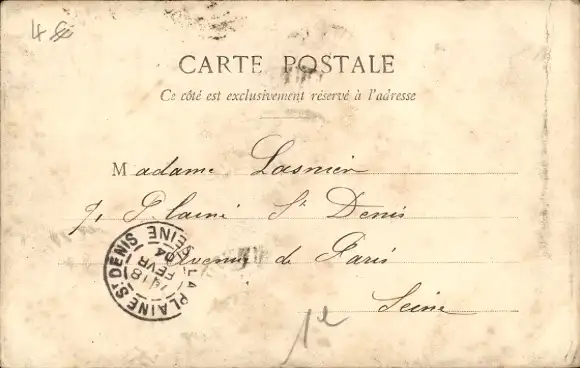 CARTE POSTALE
Ce côté est exclusivement réservé à l'adresse
Madame Lasnier
7, Plaine St Denis
Avenue de Paris
Seine
LA PLAINE ST DENIS
SEINE
18
FEVR
04
1e